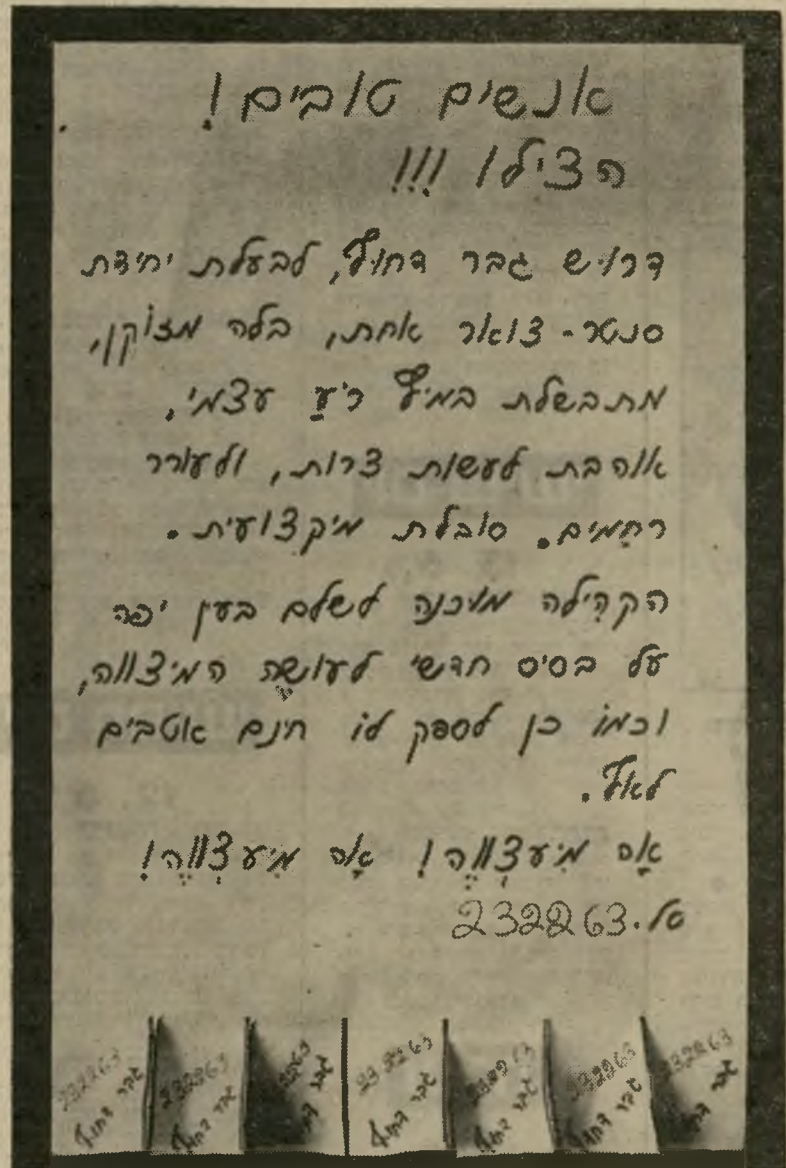 אנשים טובים!
הצילו !!!
דרוש גבר דחוף, לבעלת יחידת
סנטר-צואר אחת, בלה מזוקן,
מתבשלת במיץ רֹעַ עצמי,
אוהבת לעשות צרות, ולעורר
רחמים. סובלת מיקצועית.
הקהילה מוכנה לשלם בעין יפה
על בסיס חדשי לעושֶה המיצווה,
וכמוֹ כן לספק לוֹ חינם אטבים
לאף.
אָה מִיעצְווֶה! אָה מִיעצְווֶה!
טל. 232263
232263 גבר דחוף
232263 גבר דחוף
232263 גבר דחוף
232263 גבר דחוף
232263 גבר דחוף
232263 גבר דחוף
232263 גבר דחוף